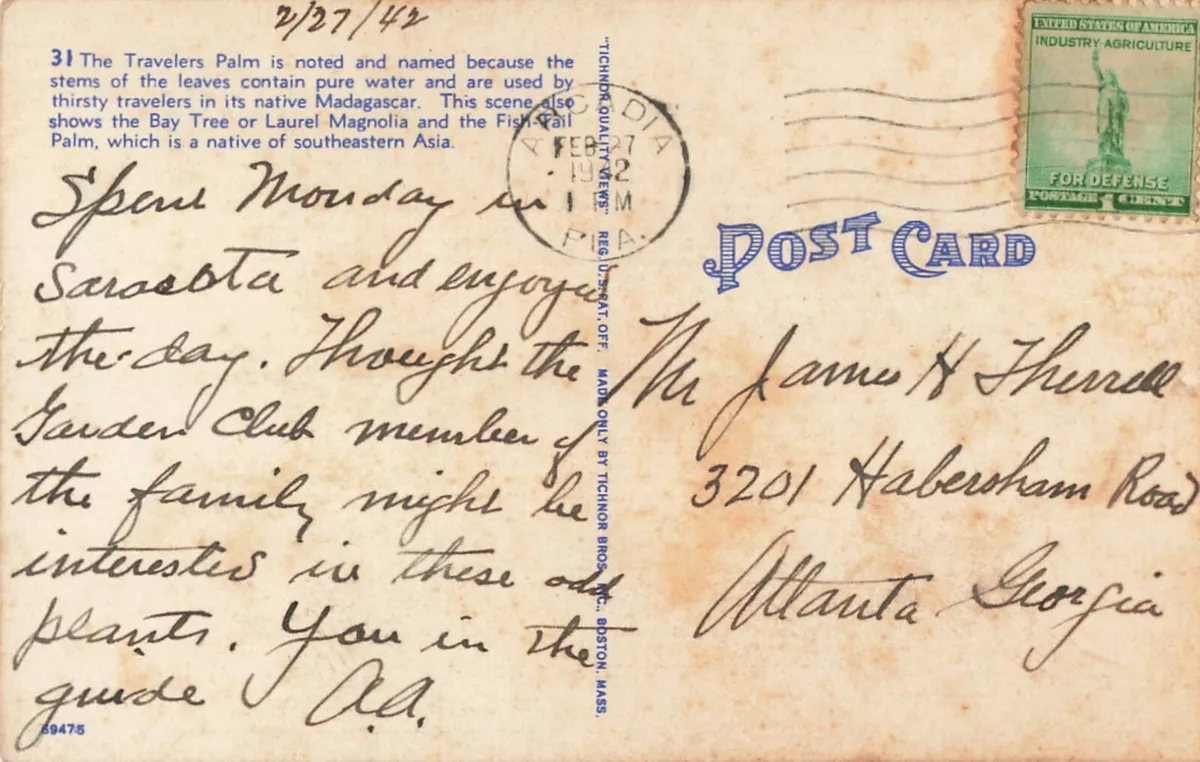 2/27/42
31 The Travelers Palm is noted and named because the
stems of the leaves contain pure water and are used by
thirsty travelers in its native Madagascar. This scene also
shows the Bay Tree or Laurel Magnolia and the Fish Tail
Palm, which is a native of southeastern Asia.
Spent Monday in
Sarasota and enjoyed
the day. Thought the
Garden Club member of
the family might be
interested in these odd
plants. You in the
guide A.A.
69475
"TICHNOR QUALITY VIEWS" REG. U.S. PAT. OFF. MADE ONLY BY TICHNOR BROS. INC., BOSTON, MASS.
ARCADIA
FEB 27
1942
1 PM
FLA.
UNITED STATES OF AMERICA
INDUSTRY AGRICULTURE
FOR DEFENSE
POSTAGE 1 CENT
POST CARD
Mr James H Therrell
3201 Habersham Road
Atlanta Georgia